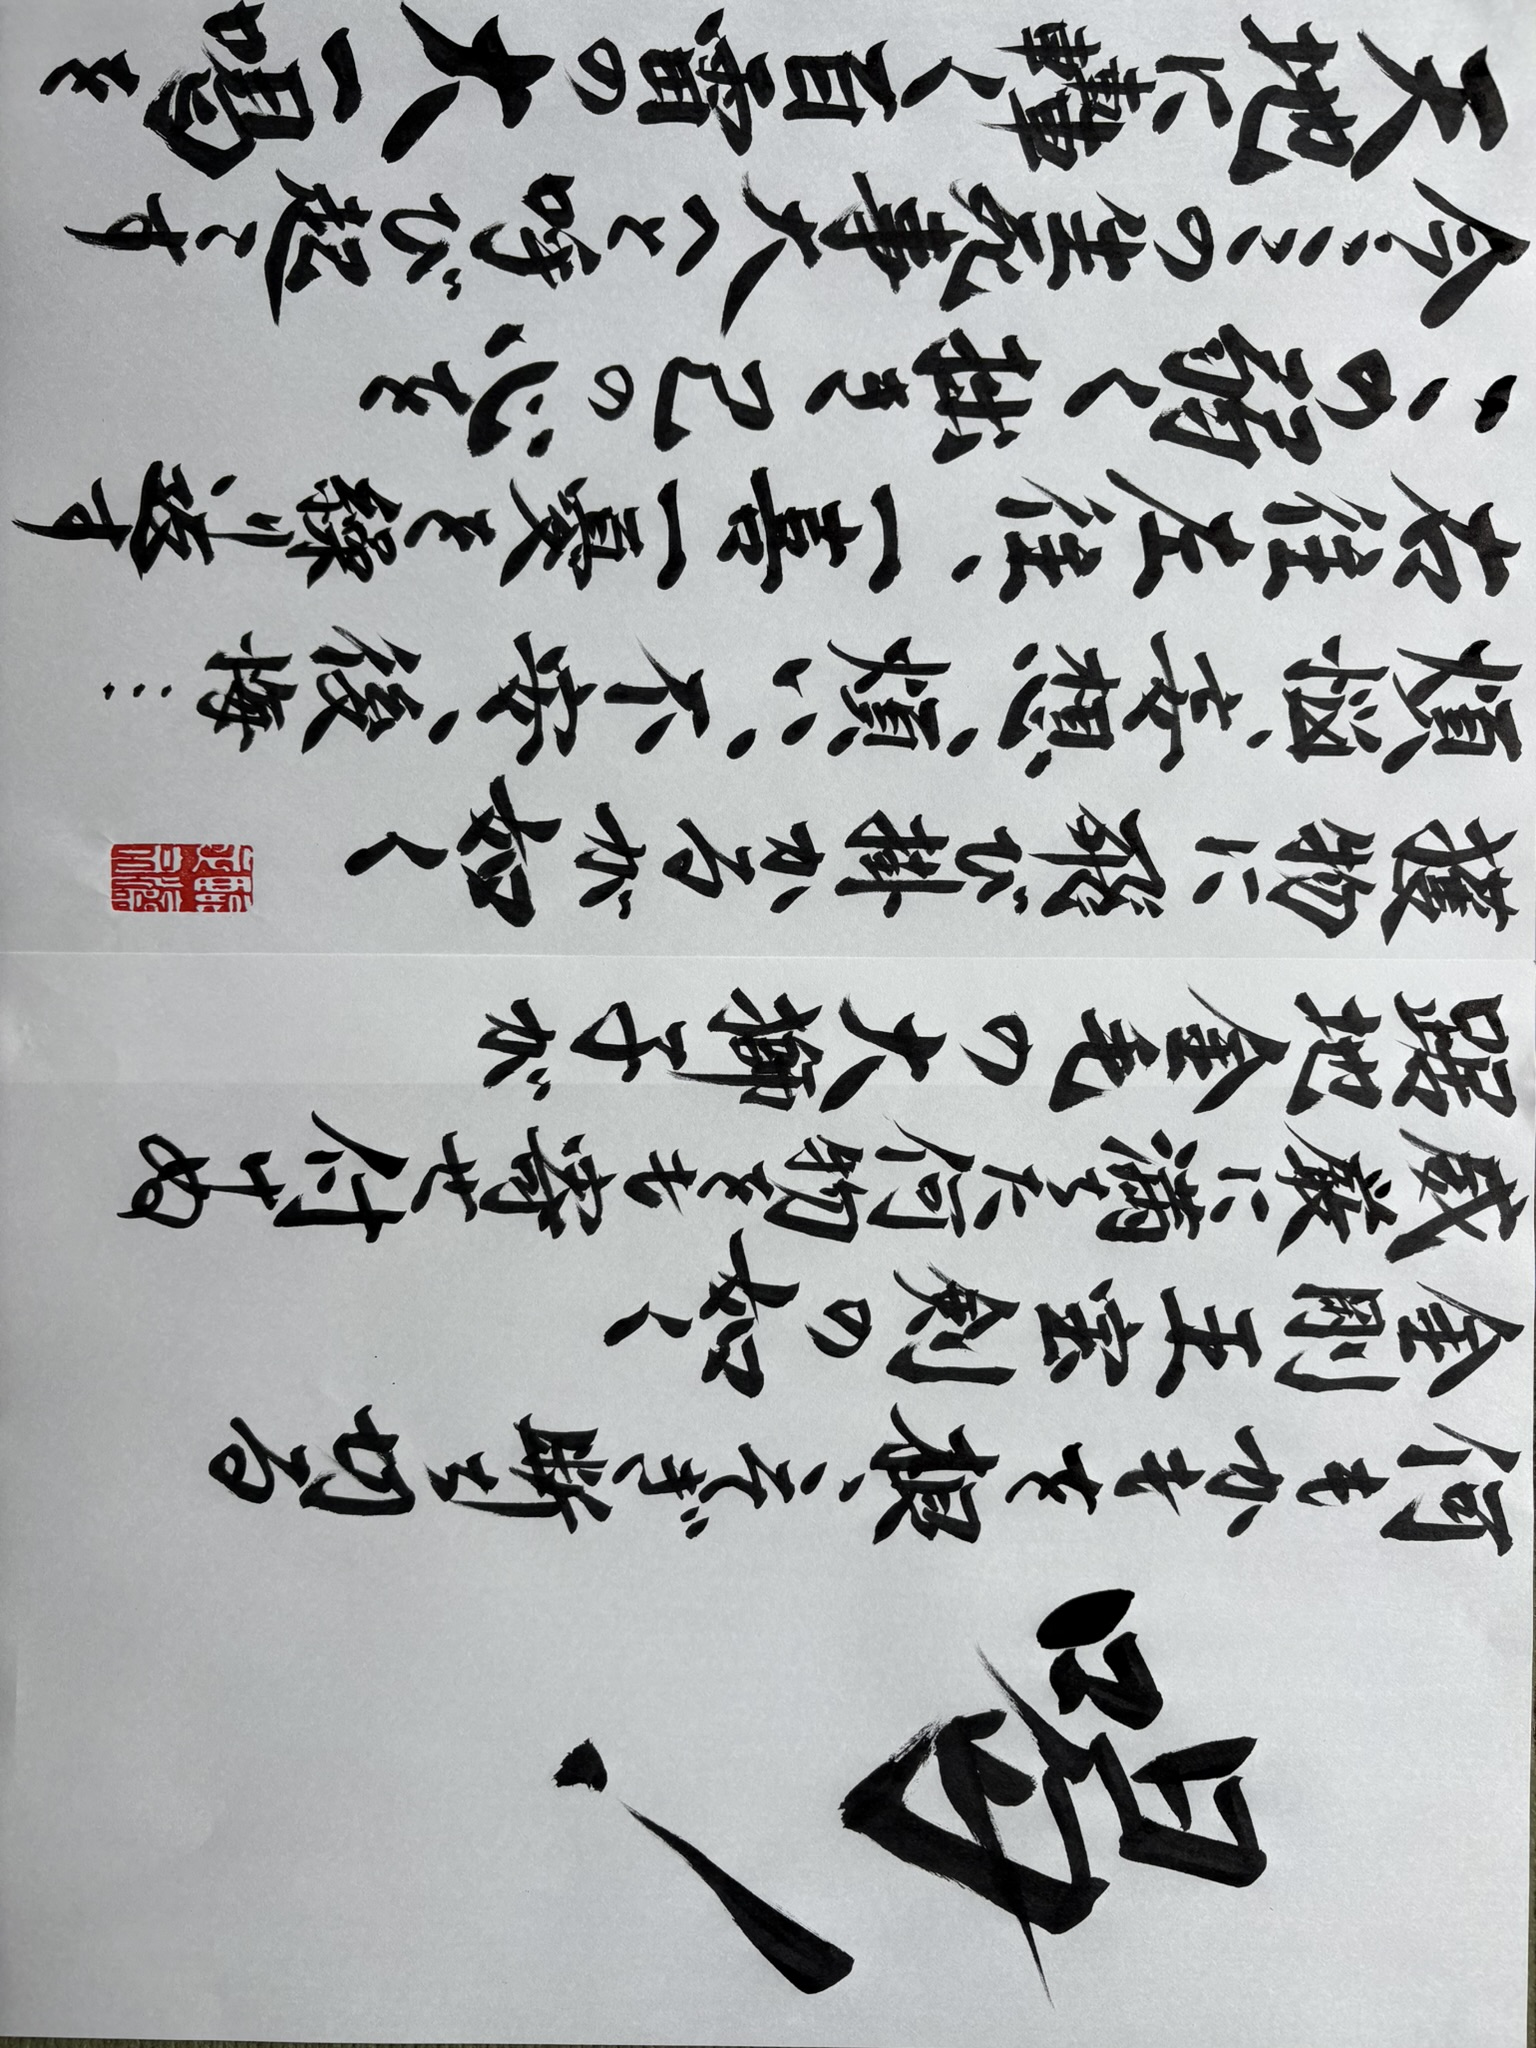 喝!
何もかもを根こそぎ断ち切る
金剛王宝剣の如く
威厳に満ち何物をも寄せ付けぬ
踞地金毛の大獅子が
獲物に飛び掛かるが如く
煩悩、妄想、煩い、不安、後悔…
右往左往、一喜一憂を繰り返す
この弱く拙き己の心を
今ここの生死事大へと呼び起こす
天地に轟く百雷の大一喝を